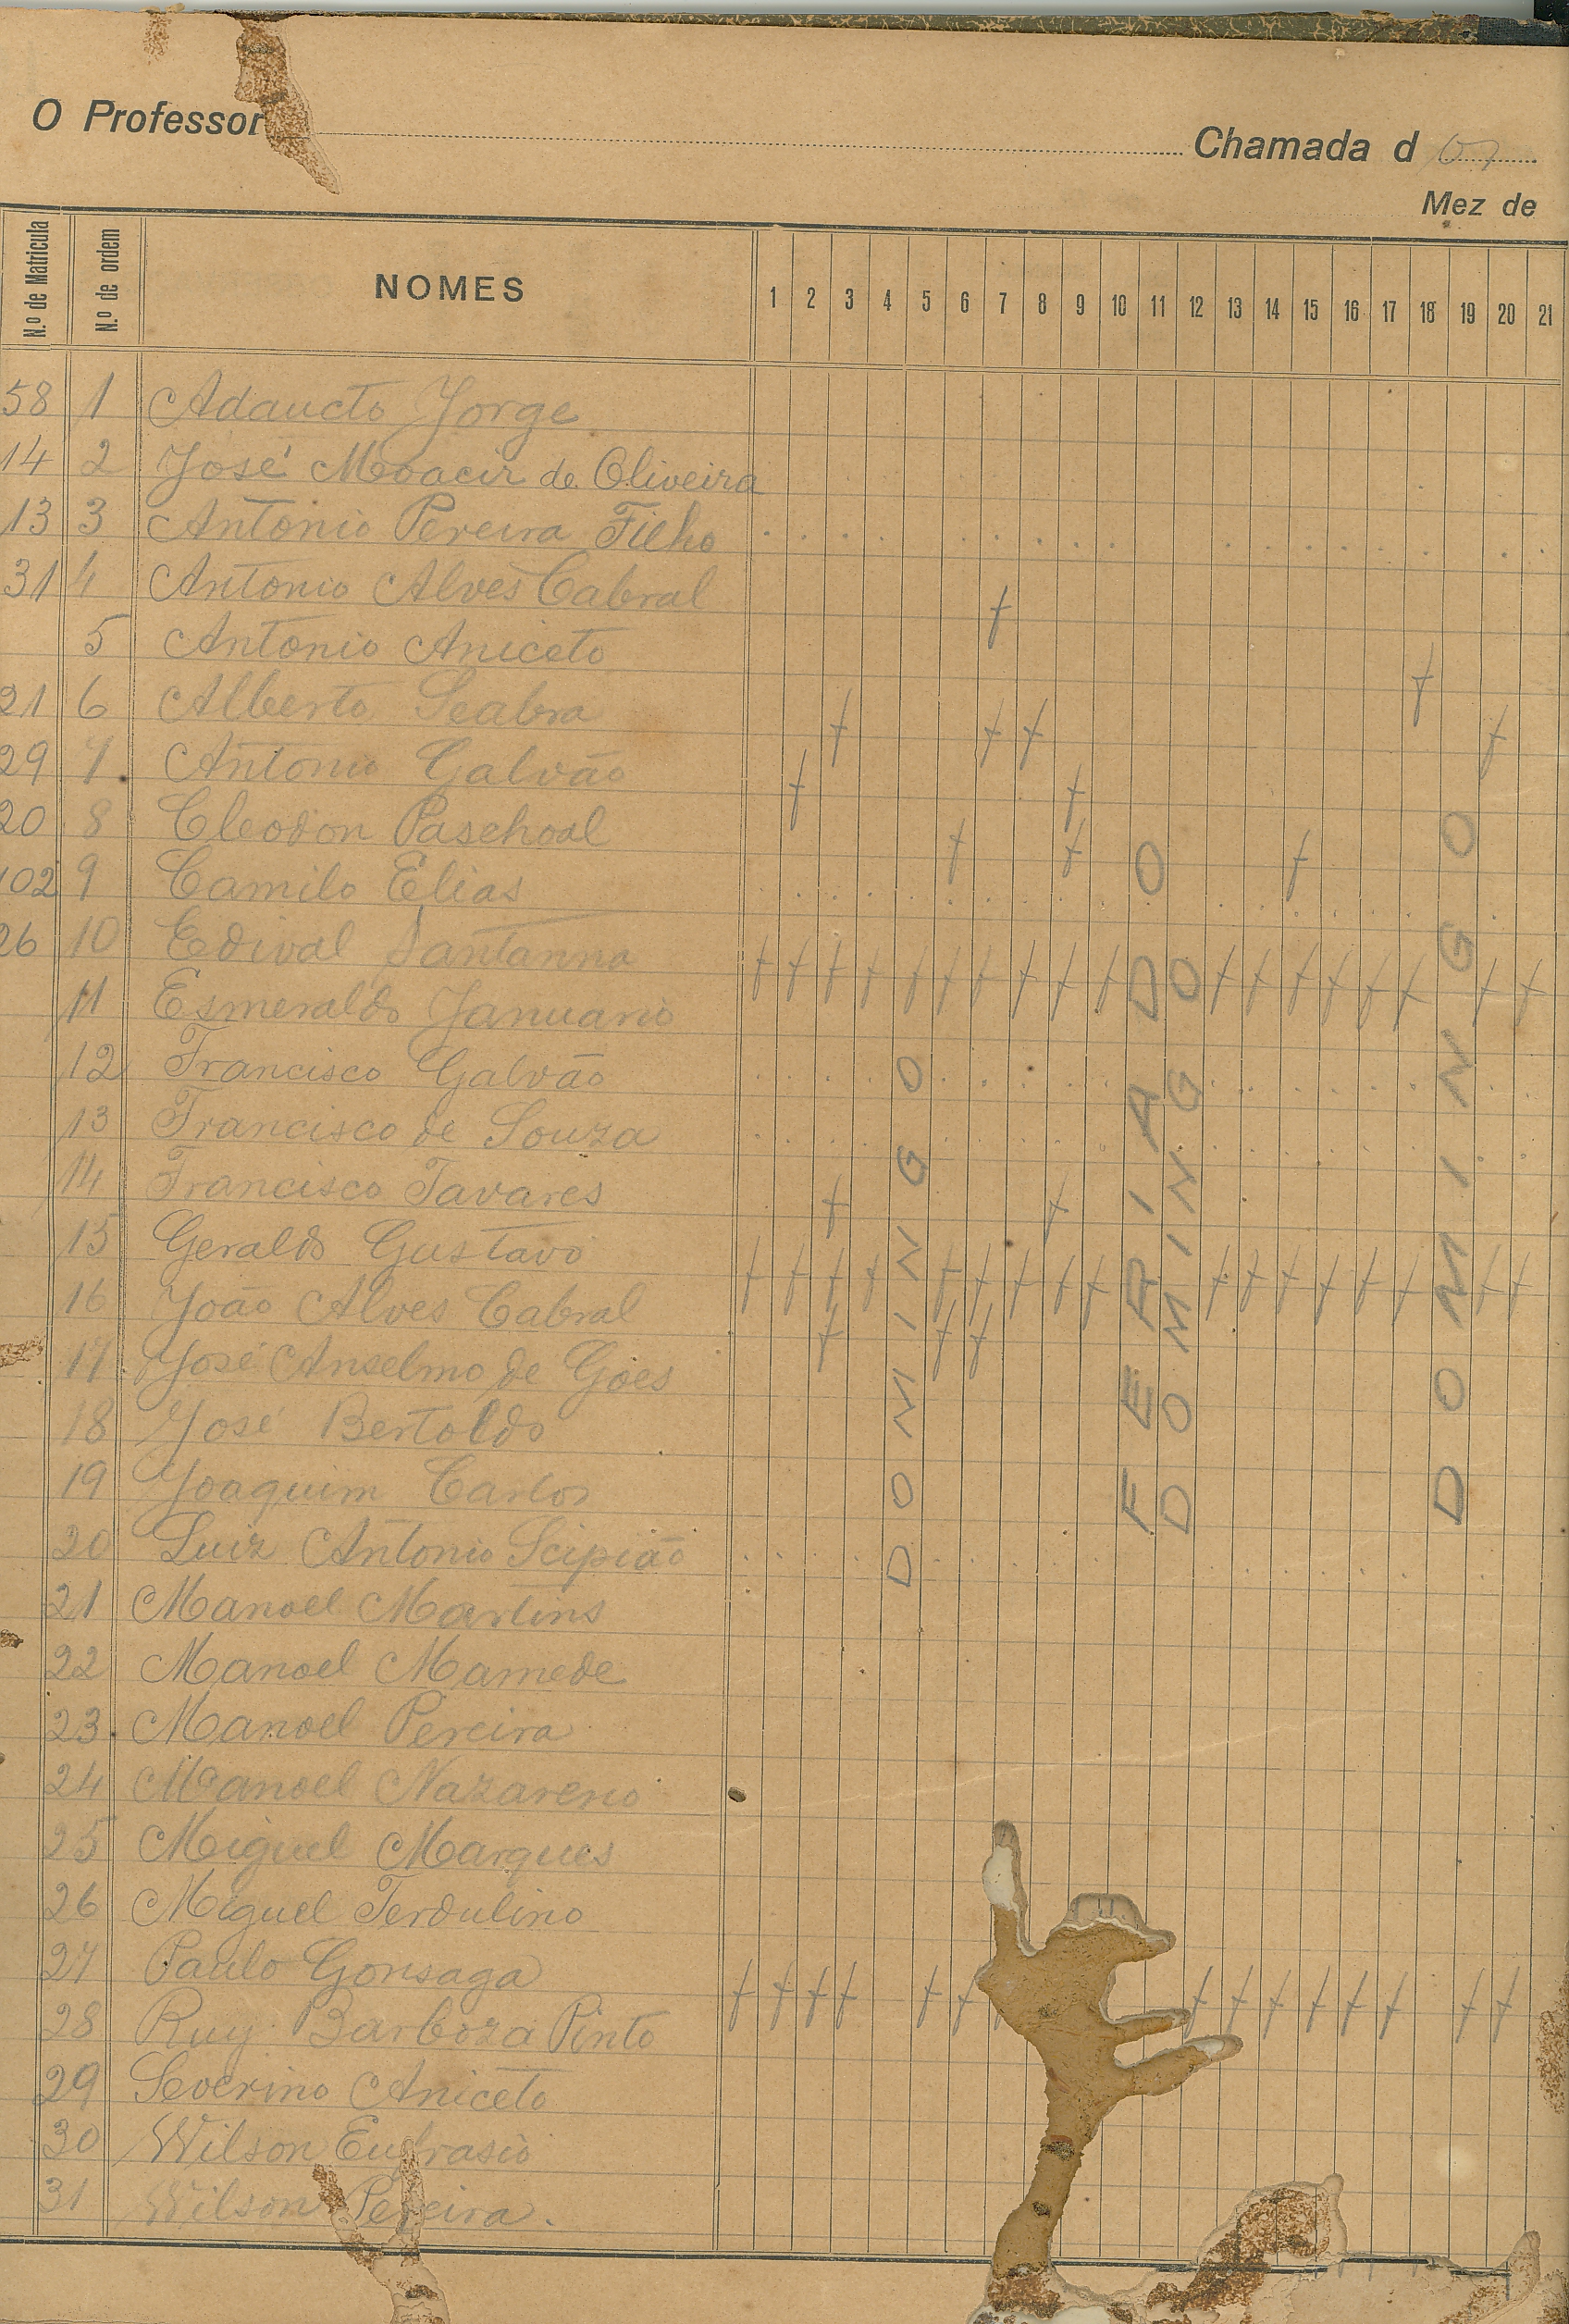 O Professor
Chamada d
Mez de
N.º de Matricula N.º de ordem NOMES 1 2 3 4 5 6 7 8 9 10 11 12 13 14 15 16 17 18 19 20 21
58 1 Adaucto Jorge
14 2 José Moacir de Oliveira
13 3 Antonio Pereira Filho
31 4 Antonio Alves Cabral
5 Antonio Aniceto
21 6 Alberto Seabra
29 7 Antonio Galvão
20 8 Cleodon Paschoal
102 9 Camilo Elias
26 10 Edival Santanna
11 Esmeraldo Januario
12 Francisco Galvão
13 Francisco de Souza
14 Francisco Tavares
15 Geraldo Gustavo
16 João Alves Cabral
17 José Anselmo de Goes
18 José Bertoldo
19 Joaquim Carlos
20 Luiz Antonio Scipião
21 Manoel Martins
22 Manoel Mamede
23 Manoel Pereira
24 Manoel Nazareno
25 Miguel Marques
26 Miguel Terdulino
27 Paulo Gonsaga
28 Ruy Barboza Pinto
29 Severino Aniceto
30 Wilson Eufrasio
31 Wilson Pereira.
DOMINGO
FERIADO
DOMINGO
DOMINGO